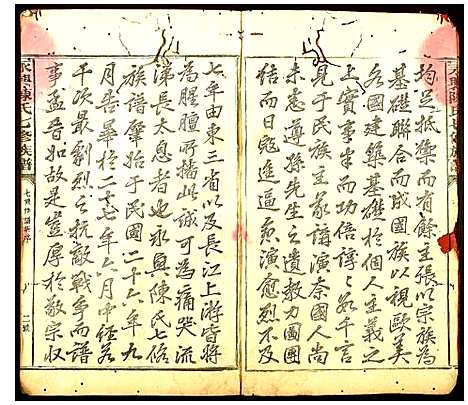 均足抵禦而有餘主張以宗族為
基礎聯合而成國族以視歐美
各國建築基礎於個人主義之
上實事半而功倍諄諄千言
見于民族主義講演奈國人尚
未恙孫先生之遺教力圖團
結而日寇進逼愈演愈烈不及
七年由東三省以及長江上游皆將
為腥膻所播此誠可為痛哭流
涕長太息者也永興陳氏七修
族譜肇始于民國二十六年九
月告畢於二十七年六月中經若
干次最劇烈之抗敵戰爭而譜
事益普如故是豈厚於敬宗收
永興陳氏七修族譜
七修族譜序
二號